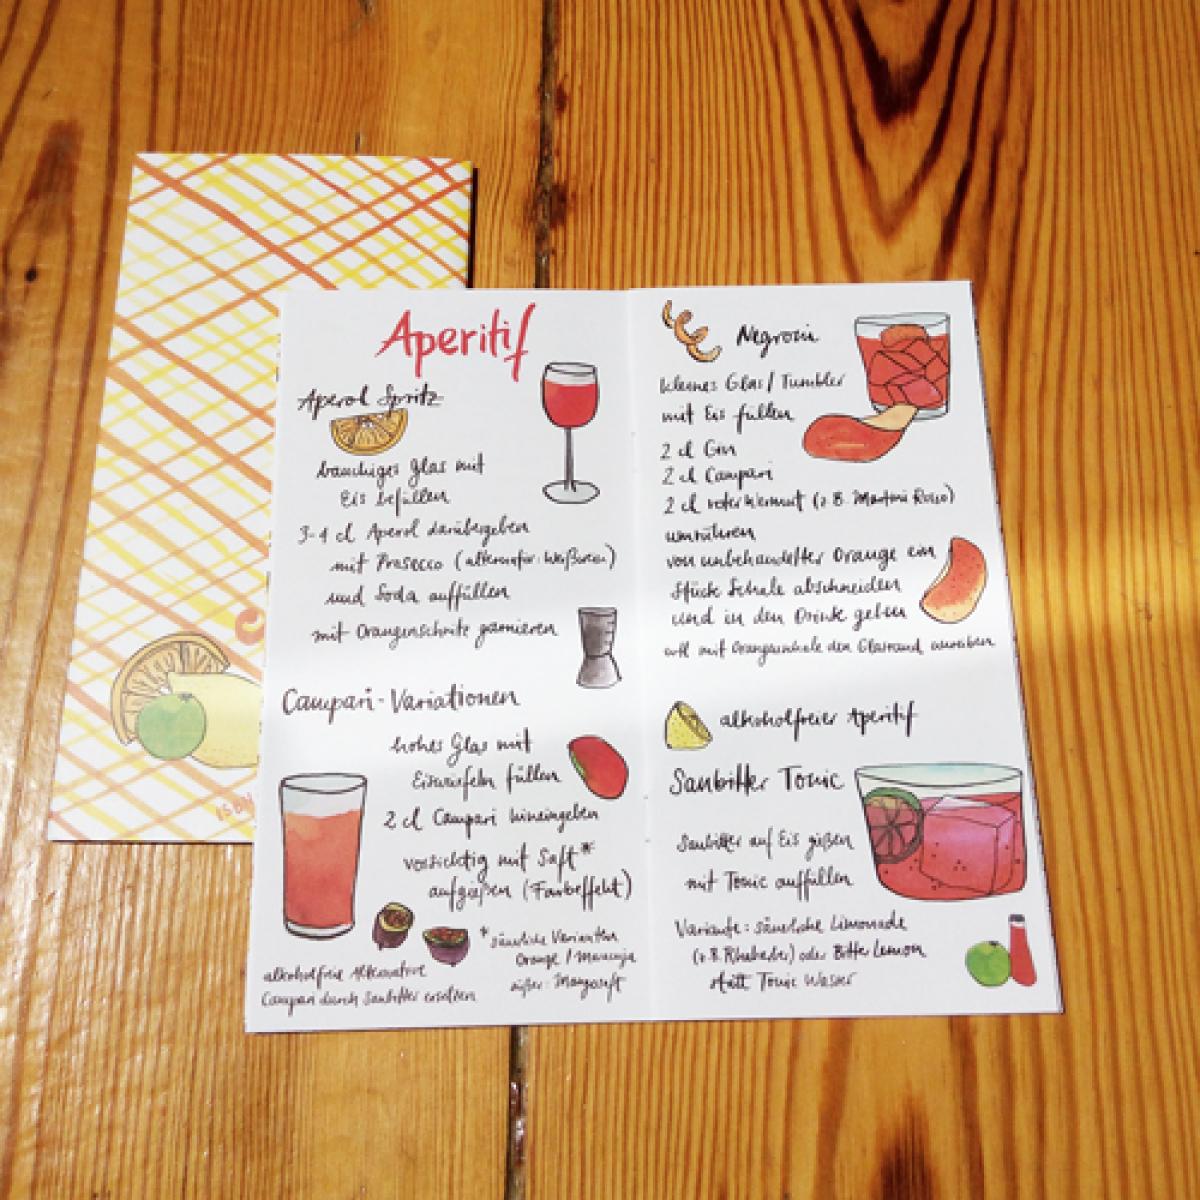 Aperitif
Aperol Spritz
bauchiges Glas mit
Eis befüllen
3-4 cl Aperol darübergeben
mit Prosecco (alternativ: Weißwein)
und Soda auffüllen
mit Orangenschnitz garnieren
Campari-Variationen
hohes Glas mit
Eiswürfeln füllen
2 cl Campari hineingeben
vorsichtig mit Saft*
aufgießen (Farbeffekt)
*säuerliche Varianten
Orange / Maracuja
süßer: Mangosaft
alkoholfreie Alternative
Campari durch Sanbitter ersetzen
Negroni
kleines Glas / Tumbler
mit Eis füllen
2 cl Gin
2 cl Campari
2 cl roter Wermut (z.B. Martini Rosso)
umrühren
von unbehandelter Orange ein
Stück Schale abschneiden
und in den Drink geben
evtl mit Orangenschale den Glasrand einreiben
alkoholfreier Aperitif
Sanbitter Tonic
Sanbitter auf Eis gießen
mit Tonic auffüllen
Variante: säuerliche Limonade
(z.B. Rhabarber) oder Bitter Lemon
statt Tonic Water